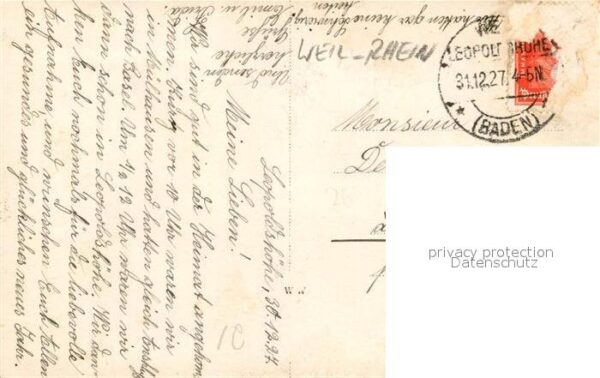 Leopoldshöhe, 30.12.27
Meine Lieben!
Wir sind gut in der Heimat angekom
men. Kurz vor 10 Uhr waren wir
in Mülhausen und hatten gleich Anschluß
nach Basel. Um ½ 12 Uhr waren wir
dann schon in Leopoldshöhe. Wir dan-
ken Euch nochmals für die liebevolle
Teilnahme und wünschen Euch Allen
ein gesundes und glückliches neues Jahr.
Und senden
herzliche
Grüße
Emil u.
Wir hatten gar keine Schwierig
keiten
WEIL - RHEIN
LEOPOLDSHÖHE
31.12.27. 4-5N.
* * (BADEN)
Monsieur
De
W W
12
26
privacy protection
Datenschutz